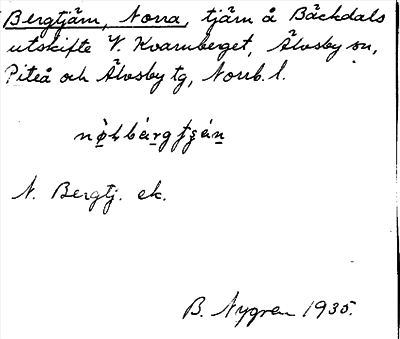 Bergtjärn, Norra, tjärn å Bäckdals
utskifte V. Kvarnberget, Älvsby sn,
Piteå och Älvsby tg, Norrb. l.
N. Bergtj. ek.
B. Nygren 1935.